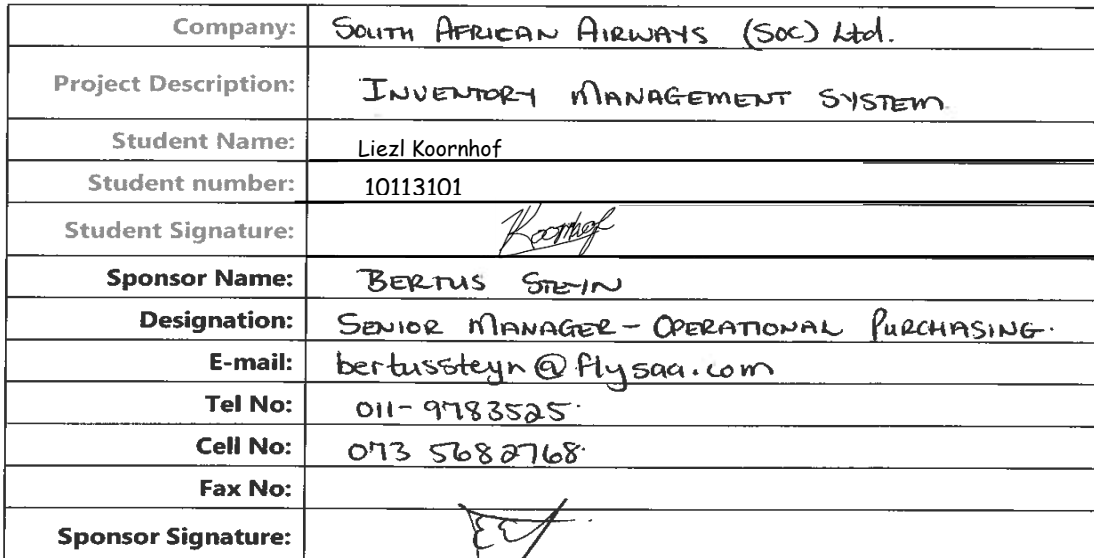 Company: SOUTH AFRICAN AIRWAYS (SOC) Ltd.
Project Description: INVENTORY MANAGEMENT SYSTEM
Student Name: Liezl Koornhof
Student number: 10113101
Student Signature: Koornhof
Sponsor Name: BERTUS STEYN
Designation: SENIOR MANAGER - OPERATIONAL PURCHASING.
E-mail: bertussteyn@flysaa.com
Tel No: 011-9783525
Cell No: 073 5682768
Fax No:
Sponsor Signature: